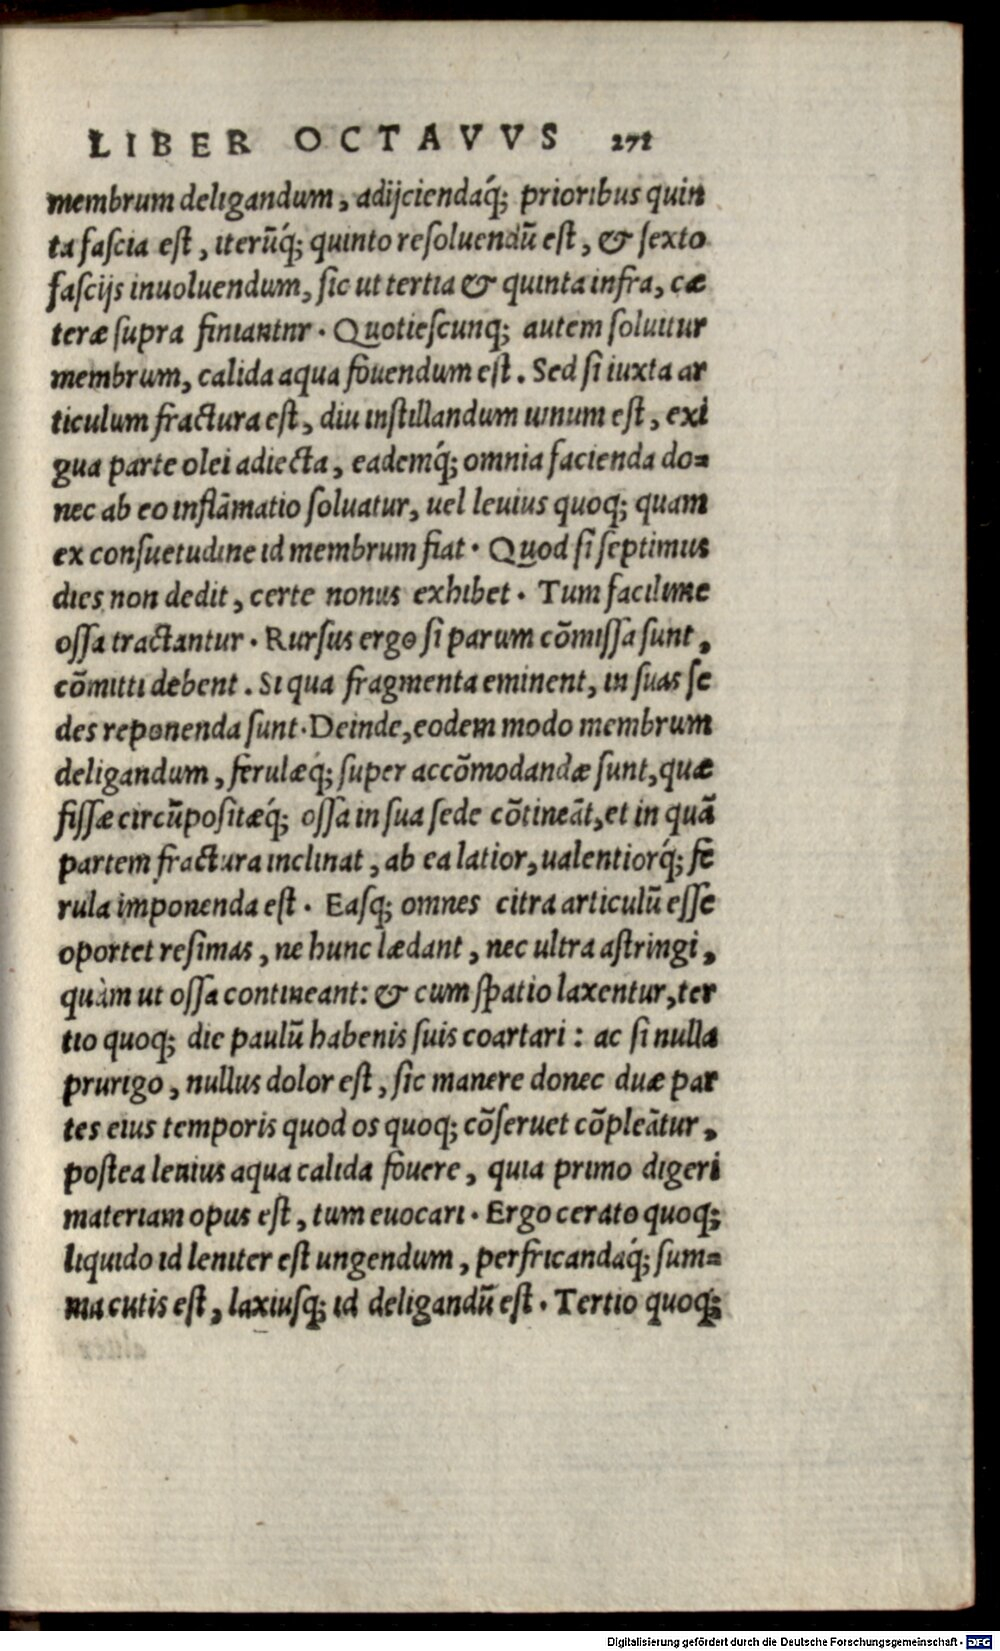 LIBER OCTAVVS 271
membrum deligandum, adijciendaq́; prioribus quin
ta fascia est, iterūq́; quinto resoluendū est, & sexto
fascijs inuoluendum, sic ut tertia & quinta infra, cæ
teræ supra finiantnr. Quotiescunq; autem soluitur
membrum, calida aqua fouendum est. Sed si iuxta ar
ticulum fractura est, diu instillandum uinum est, exi
gua parte olei adiecta, eademq́; omnia facienda do=
nec ab eo inflāmatio soluatur, uel leuius quoq; quam
ex consuetudine id membrum fiat. Quod si septimus
dies non dedit, certe nonus exhibet. Tum facilime
ossa tractantur. Rursus ergo si parum cōmissa sunt,
cōmitti debent. Si qua fragmenta eminent, in suas se
des reponenda sunt. Deinde, eodem modo membrum
deligandum, ferulæq́; super accōmodandæ sunt, quæ
fissæ circūpositæq́; ossa in sua sede cōtineāt, et in quā
partem fractura inclinat, ab ea latior, ualentiorq́; fe
rula imponenda est. Easq; omnes citra articulū esse
oportet resimas, ne hunc lædant, nec ultra astringi,
quàm ut ossa contineant: & cum spatio laxentur, ter
tio quoq; die paulū habenis suis coartari: ac si nulla
prurigo, nullus dolor est, sic manere donec duæ par
tes eius temporis quod os quoq; cōseruet cōpleātur,
postea lenius aqua calida fouere, quia primo digeri
materiam opus est, tum euocari. Ergo cerato quoq;
liquido id leniter est ungendum, perfricandaq́; sum=
ma cutis est, laxiusq; id deligandū est. Tertio quoq;
Digitalisierung gefördert durch die Deutsche Forschungsgemeinschaft - DFG